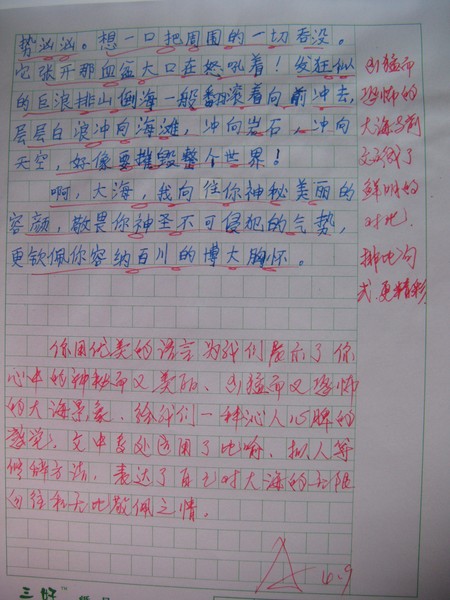 势汹汹。想一口把周围的一切吞没。
它张开那血盆大口在怒吼着！发狂似
的巨浪排山倒海一般翻滚着向前冲去，
层层白浪冲向海滩，冲向岩石，冲向
天空，好像要摧毁整个世界！
啊，大海，我向往你神秘美丽的
容颜，敬畏你神圣不可侵犯的气势，
更钦佩你容纳百川的博大胸怀。
凶猛而
恐怖的
大海与前
文形成了
鲜明的
对比，
排比句
式更精彩
你用优美的语言为我们展示了你
心中的神秘而又美丽、凶猛而又恐怖
的大海景象，给我们一种沁人心脾的
感觉，文中多处运用了比喻、拟人等
修辞方法，表达了自己对大海的无限
向往和无比敬佩之情。
A 4.9
三好